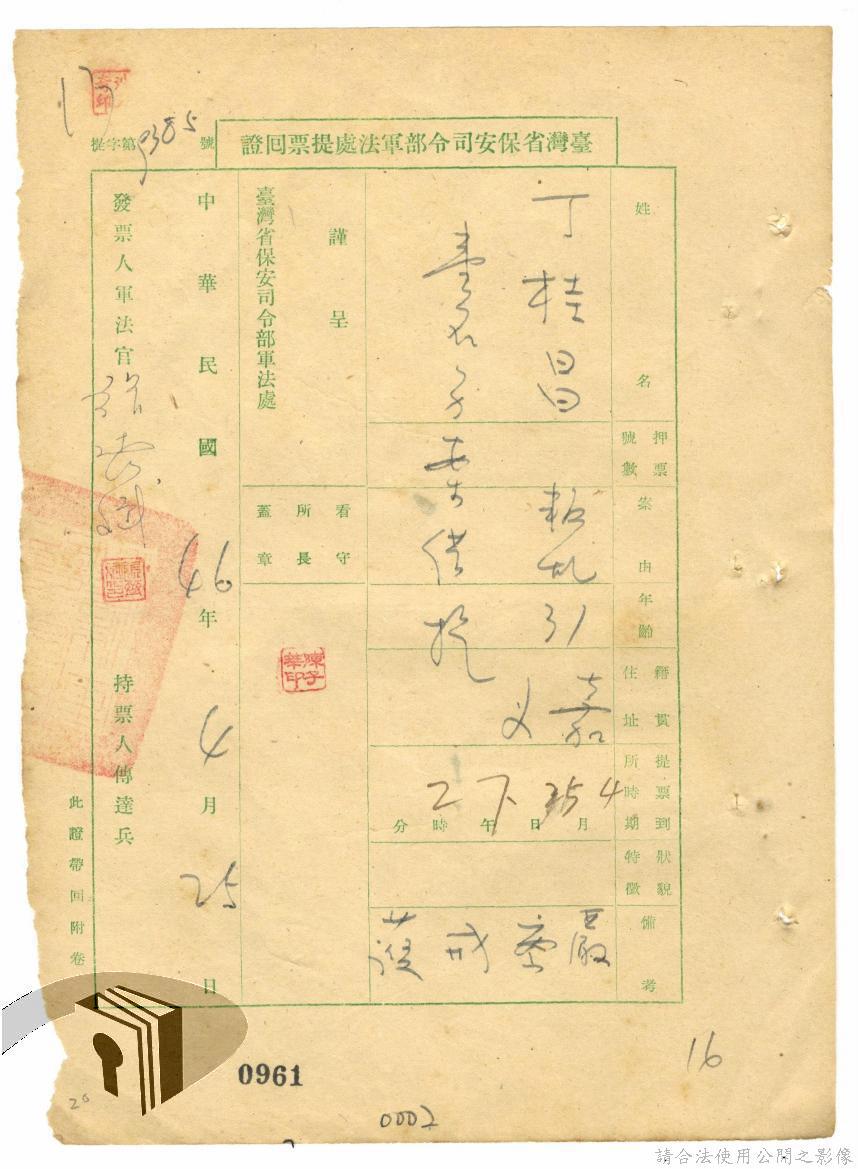 臺灣省保安司令部軍法處提票回證
提字第9385號
姓名
丁桂昌
壹名
押票號數
案由
叛亂
年齡
31
籍貫住址
嘉义
提票到所時期
4月25日下午2時 分
狀貌特徵
備考
嚴密戒護
謹呈
臺灣省保安司令部軍法處
看守所長蓋章
陳子華印
中華民國46年4月25日
發票人軍法官
持票人傳達兵
此證帶回附卷
16
0961
0002
20
請合法使用公開之影像